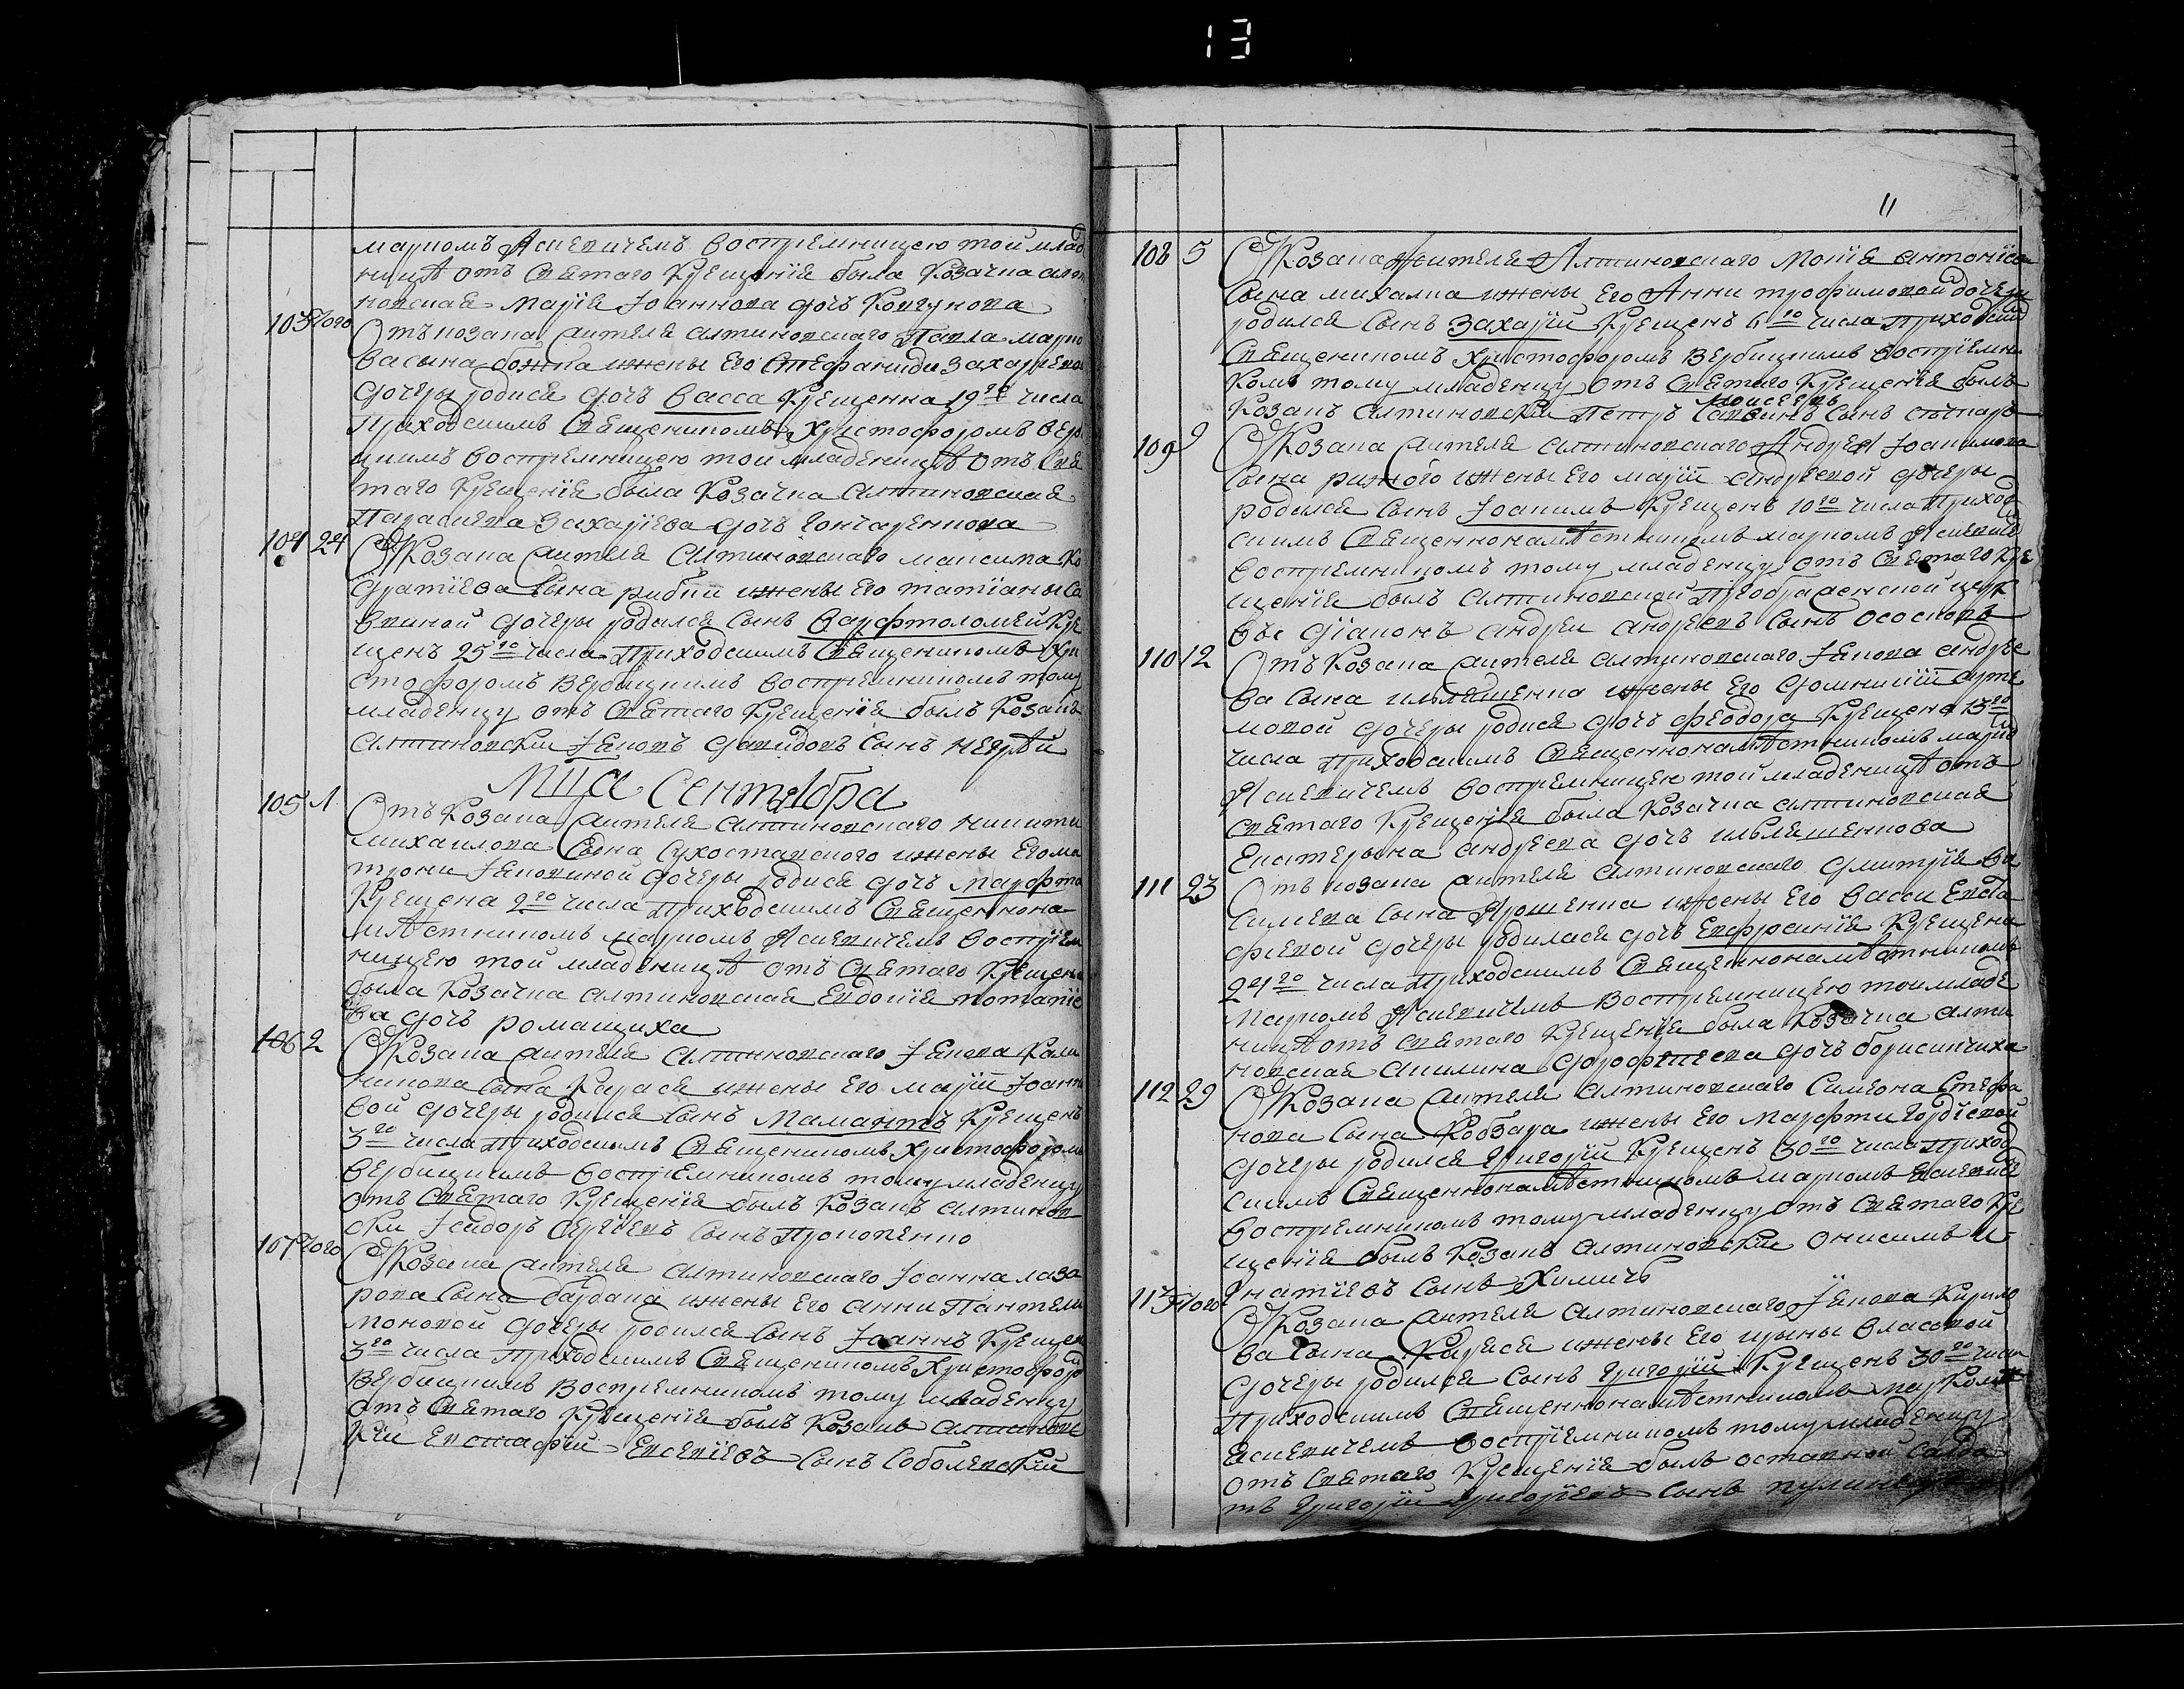 13
маркомъ Яснѣвичемъ воспрѣемницею тои млад
ницѣ отъ святаго крещенія была козачка алти
новская Марія Іоаннова дочъ Ковгунова
103 того Отъ козака жителя алтиновскаго Павла марко
ва сына божка ижены его Стефаниди захаріевой
дочеры родися дочъ Васса крещенна 19го числа
приходскимъ священникомъ Христофоромъ верби
цкимъ воспрѣемницею тои младеницѣ отъ свя
таго крещенія была козачка алтиновская
Параскева Захаріева дочъ Гончаренкова
104 24 От козака жителя алтиновскаго максима ко
дратіева сына рибки ижены его татіаны са
вкиной дочеры родился сынъ Варфтоломей кре
щенъ 25го числа приходскимъ священникомъ Хри
стофоромъ Вербицкимъ воспрѣемникомъ тому
младенцу отъ святаго крещенія былъ козакъ
алтиновски Іаковъ давидовъ сынъ
Мца Сентября
105 1 Отъ козака жителя алтиновскаго никити
михаилова сына сухоставского ижены его ма
трони Іаковиной дочеры родися дочъ Марфта
крещена 2го числа приходскимъ священнона
мѣстникомъ маркомъ Яснѣвичемъ воспрѣем
ницею тои младеницѣ отъ святаго крещенія
была козачка алтиновская Евдокія потапіе
ва дочъ ромащиха
106 2 От козака жителя алтиновскаго Іакова кали
никова сына Карася ижены его маріи Іоанно
вой дочеры родился сынъ Мамантъ крещенъ
3го числа приходскимъ священникомъ Христофоромъ
вербицкимъ воспрѣемникомъ тому младенцу
отъ святаго крещенія былъ козакъ алтинов
ски Ісидоръ сергіевъ сынъ Прокопенко
107 того От козака жителя алтиновскаго Іоанна лаза
рова сына бардака ижены его анни Пантели
моновой дочеры родился сынъ Іоаннъ крещен
3го числа приходскимъ священникомъ Христофоро
Вербицкимъ воспрѣемникомъ тому младенцу
отъ святаго крещенія былъ козакъ алтиновс
кій Евстафій Евсевіевъ сынъ Соболевскій
11
108 5 От козака жителя Алтиновскаго Мокія антоніева
сына михалка ижены его Анни трофимовой дочеры
родился сынъ Захарій крещенъ 6го числа приходским
священникомъ Христофоромъ Вербицкимъ воспрѣемни
комъ тому младенцу отъ святаго крещенія былъ
моисеевъ
козакъ алтиновски Петръ сынъ
109 9 От козака жителя алтиновскаго Андрея Іоакимова
сына рижого ижены его маріи андреевой дочеры
родился сынъ Іоакимъ крещенъ 10го числа приход
скимъ священнонамѣстникомъ маркомъ Яснѣвиче
воспрѣемникомъ тому младенцу отъ святаго кре
щенія былъ алтиновской Преображенской церк
вы діаконъ андреи андреевъ сынъ
110 12 Отъ козака жителя алтиновскаго Іакова андрее
ва сына ильяшенка ижены его домникіи арте
мовой дочеры родися дочъ Феодора крещена 13го
числа приходскимъ священнонамѣстникомъ марко
Яснѣвичемъ воспрѣемницею тои младеницѣ отъ
святаго крещенія была козачка алтиновская
Екатерына андреева дочъ ильяшенкова
111 23 Отъ козака жителя алтиновскаго дмитрія ва
силиева сына Ярошенка ижены его Васси Евста
фіевой дочеры родилася дочъ Евфросинія крещена
24го числа приходскимъ священнонамѣстникомъ
Маркомъ Яснѣвичемъ воспрѣемницею тои младе
ницѣ отъ святаго крещенія была козачка алти
новская акилина дорофтеева дочъ борисинчиха
112 29 От козака жителя алтиновскаго Симеона Стефа
нова сына Кобзара ижены его Марфти Гордіевой
дочеры родился Григорій крещенъ 30го числа приход
скимъ священнонамѣстникомъ маркомъ Яснѣвиче
воспрѣемникомъ тому младенцу отъ святаго кре
щенія былъ козакъ алтиновски онисимъ и
гнатіевъ сынъ Химичъ
113 того От козака жителя алтиновскаго Іакова Кирило
ва сына Карася ижены его ирыны власовой
дочеры родился сынъ Григорій крещенъ 30го числа
приходскимъ священнонамѣстникомъ маркомъ
Яснѣвичемъ воспрѣемникомъ тому младенцу
отъ святаго крещенія былъ оставной солда
тъ Григорій григоріевъ сынъ